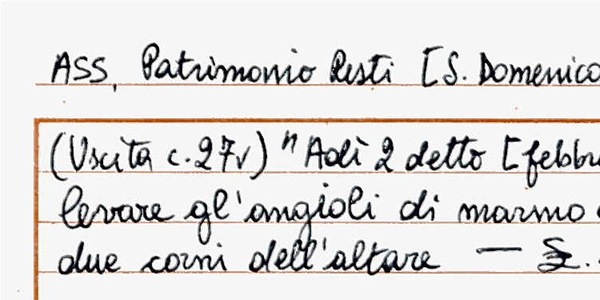 ASS, Patrimonio Resti [S. Domenico
(Uscita c. 27v) "Adì 2 detto [febbr
levare gl'angioli di marmo
due corni dell'altare —